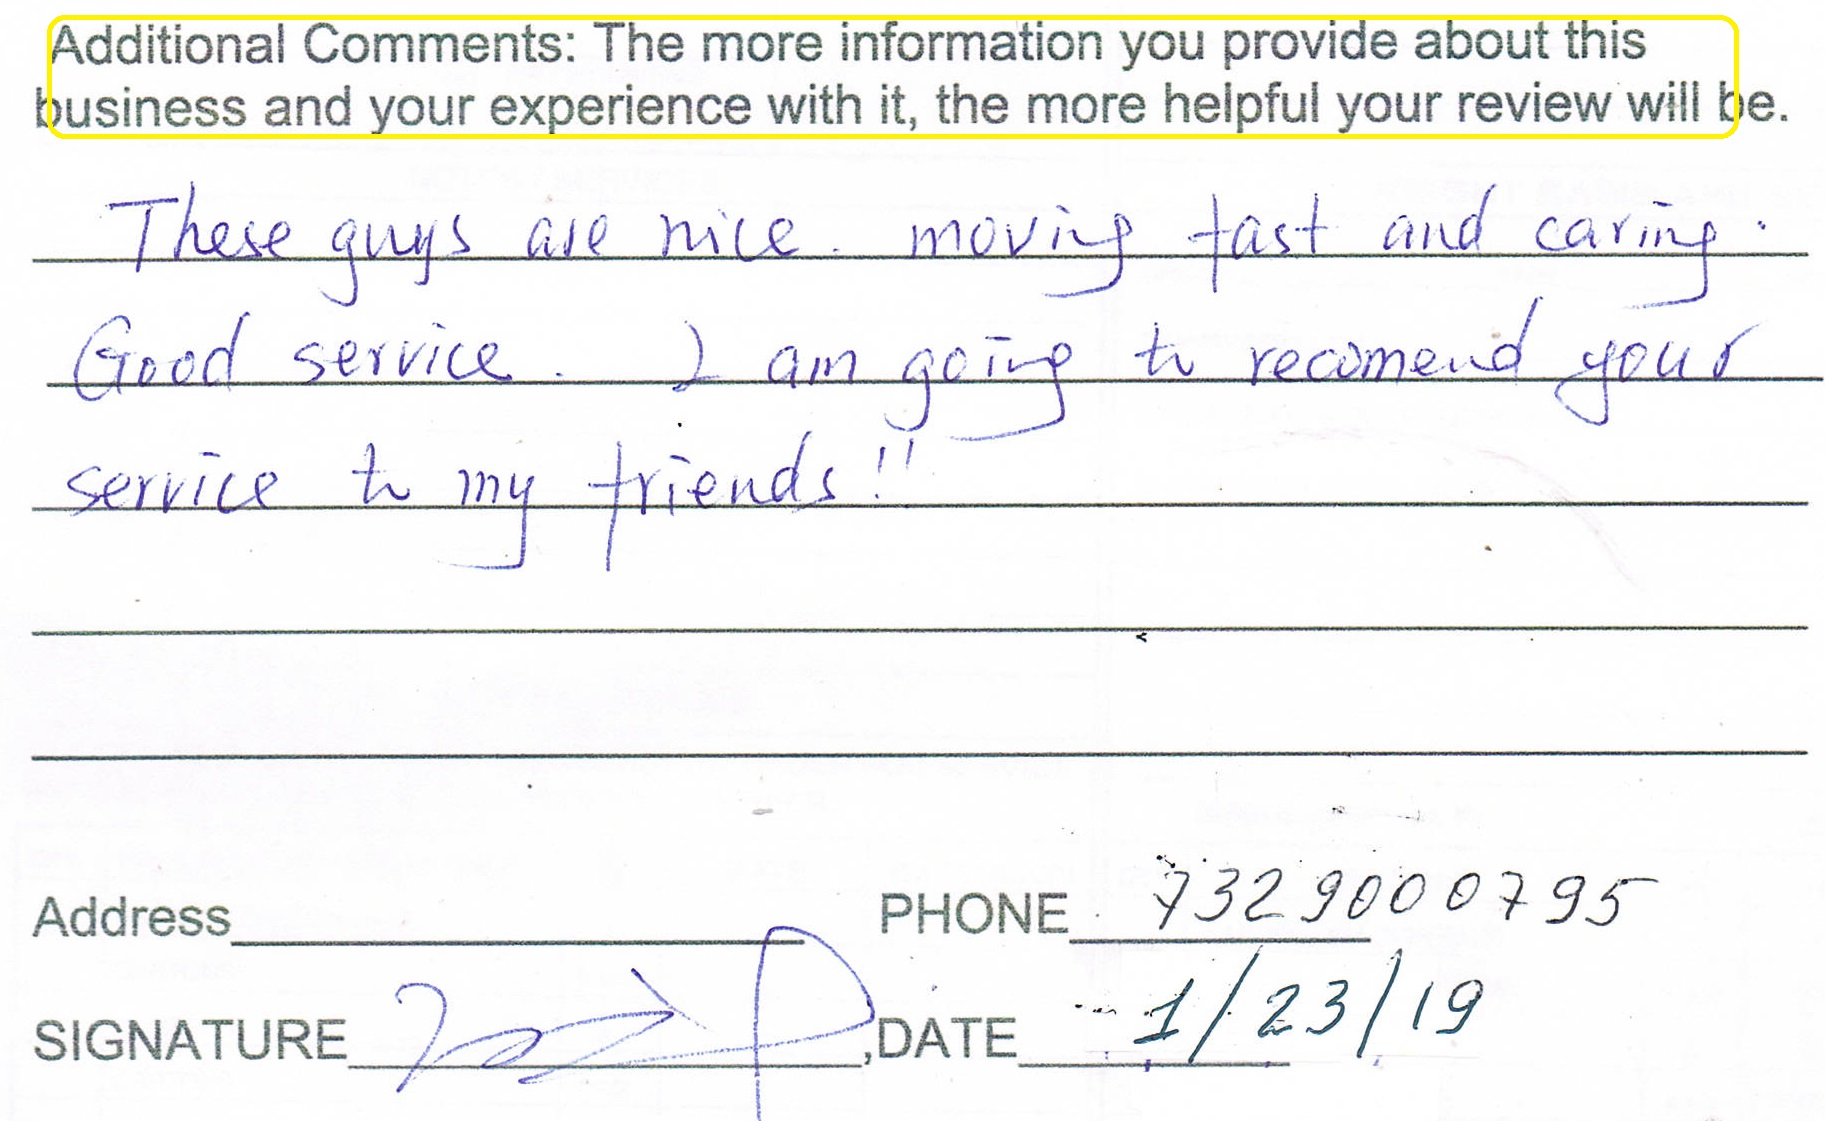 Additional Comments: The more information you provide about this
business and your experience with it, the more helpful your review will be.
These guys are nice. moving fast and caring.
Good service. I am going to recomend your
service to my friends!!
Address PHONE 7329000795
SIGNATURE ,DATE 1/23/19